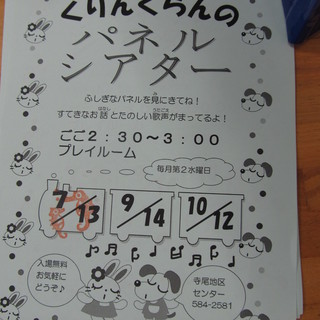 くりんくらんの
パネル
シアター
ふしぎなパネルを見にきてね！
すてきなお話とたのしい歌声がまってるよ！
ごご２：３０～３：００
プレイルーム
毎月第２水曜日
7/13
9/14
10/12
入場無料
お気軽に
どうぞ♪
寺尾地区
センター
584-2581